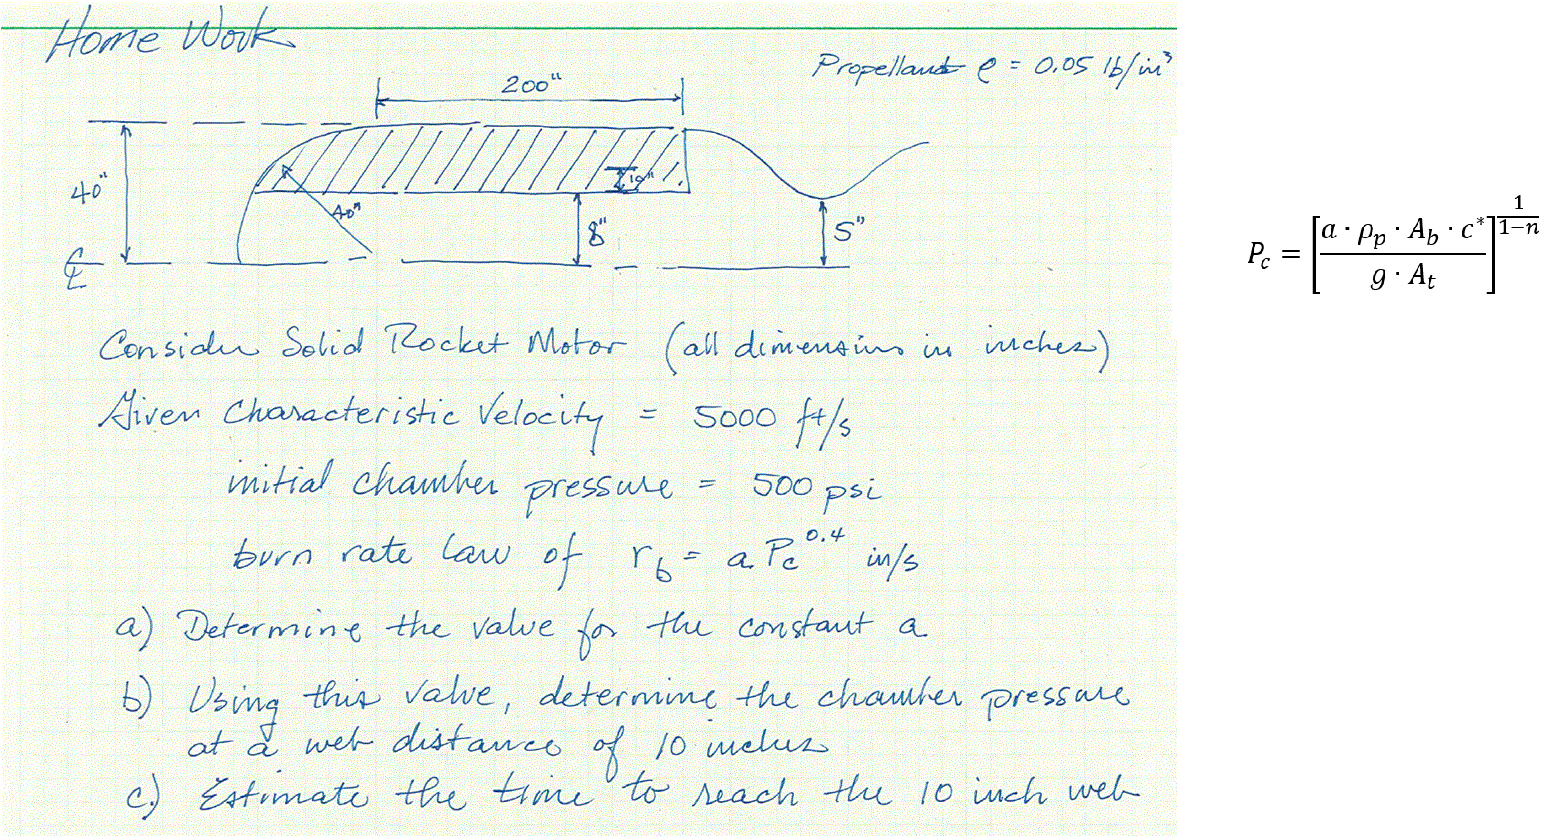 Home Work
Propellant ρ = 0.05 lb/in³
200"
40"
40"
10"
8"
5"
℄
P_c = [a · ρ_p · A_b · c* / g · A_t]^(1/(1−n))
Consider Solid Rocket Motor (all dimensions in inches)
Given Characteristic Velocity = 5000 ft/s
initial chamber pressure = 500 psi
burn rate law of r_b = a P_c^0.4 in/s
a) Determine the value for the constant a
b) Using this value, determine the chamber pressure
at a web distance of 10 inches
c.) Estimate the time to reach the 10 inch web